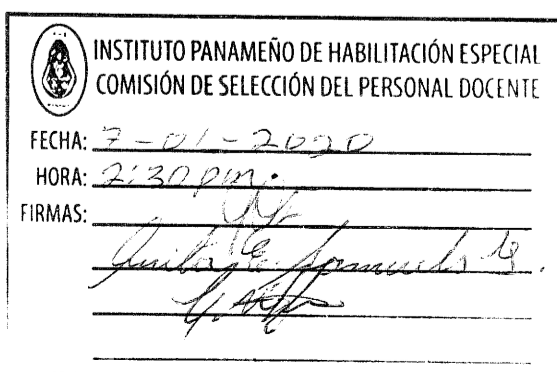 INSTITUTO PANAMEÑO DE HABILITACIÓN ESPECIAL
COMISIÓN DE SELECCIÓN DEL PERSONAL DOCENTE
FECHA: 7-01-2020
HORA: 2:30 pm.
FIRMAS: